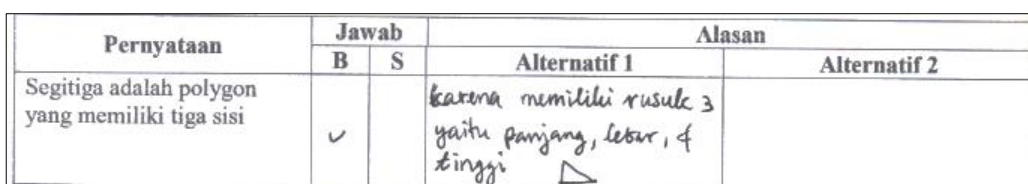 Pernyataan
Jawab
Alasan
B
S
Alternatif 1
Alternatif 2
Segitiga adalah polygon
yang memiliki tiga sisi
karena memiliki rusuk 3
yaitu panjang, lebar, &
tinggi